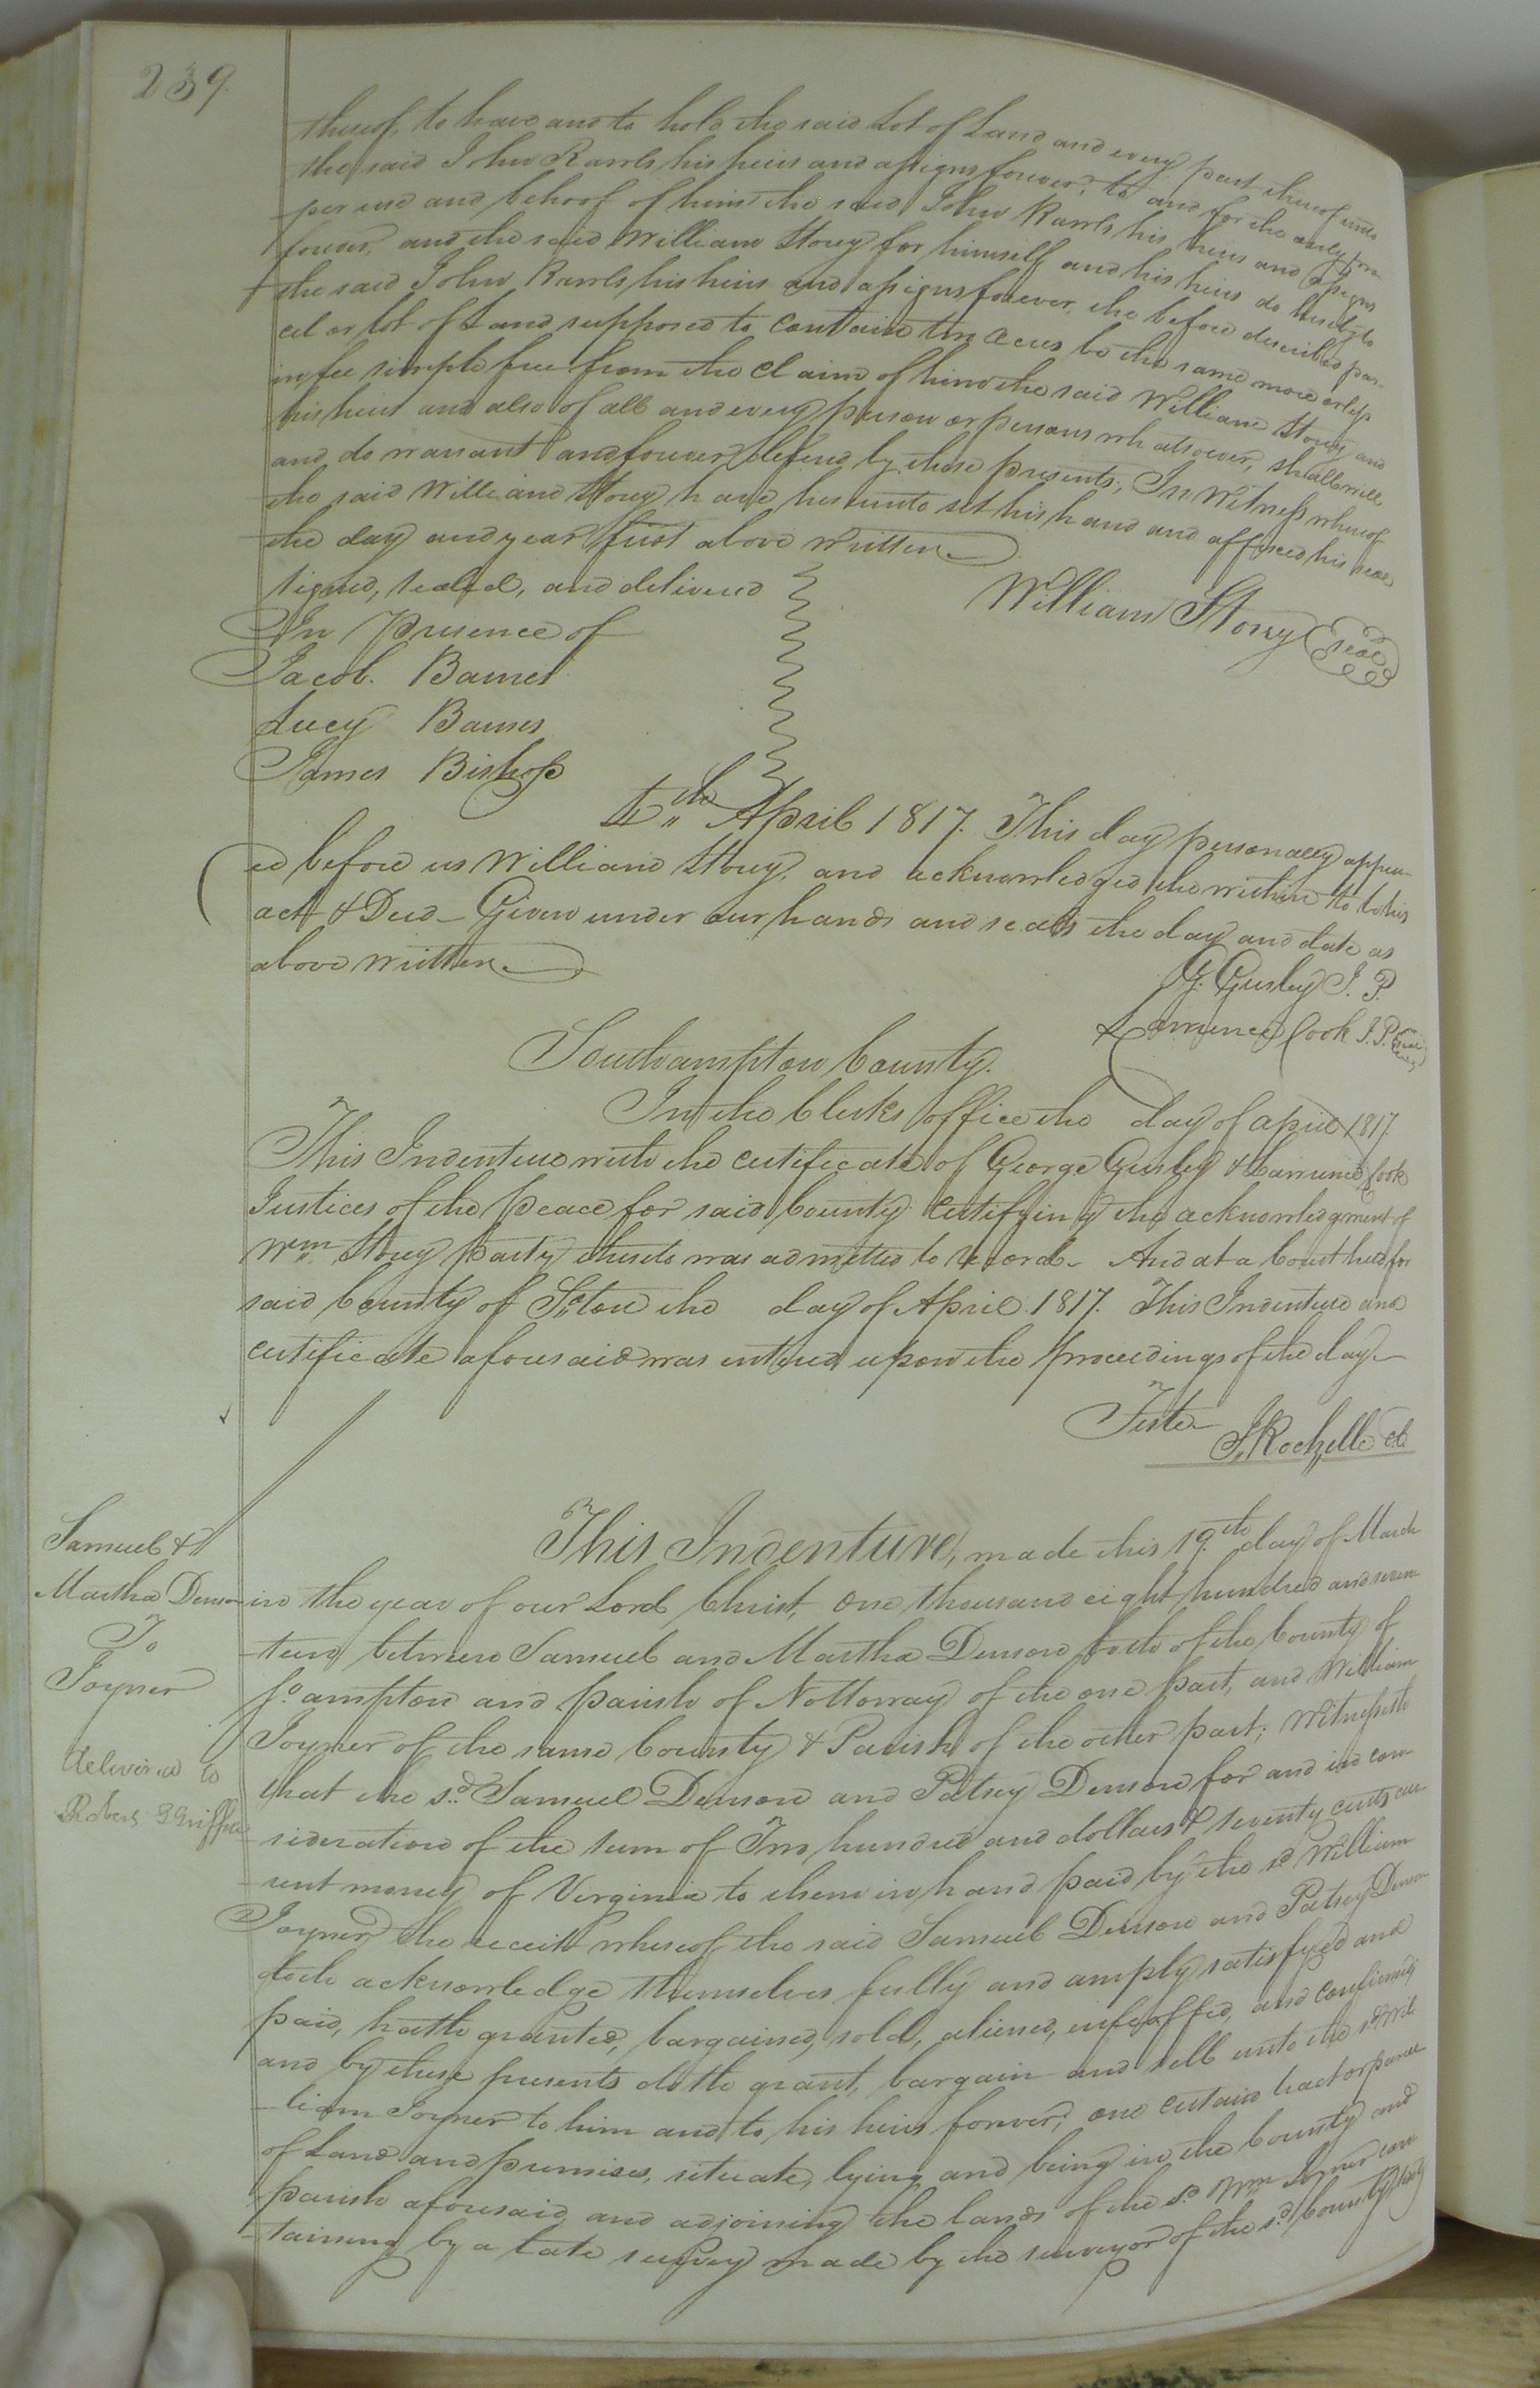 239.
thereof, to have and to hold the said Lot of Land and every part thereof unto
the said John Rawls his heirs and assigns forever, to and for the only pro-
per use and behoof of him the said John Rawls his heirs and assigns
forever, and the said William Story for himself and his heirs do hereby to
the said John Rawls his heirs and assigns forever, the before described par-
cel or lot of Land supposed to contain ten acres be the same more or less
in fee simple free from the claim of him the said William Story and
his heirs and also of all and every person or persons whatsoever, shall will
and do warrant and forever defend by these presents; In Witness whereof
the said William Story have hereunto set his hand and affixed his seal
the day and year first above written
signed, sealed, and delivered
In Presence of
William Story seal
Jacob. Barnes
Lucy Barnes
James Bishop
4th April 1817. This day personally appear-
ed before us William Story, and acknowledged the within to be his
act & Deed - Given under our hands and seals the day and date as
above written
G. Gurley J. P.
Lawrence Cook J. P. seal
Southampton County.
In the Clerks office the day of april 1817.
This Indenture with the certificate of George Gurley & Lawrence Cook
Justices of the Peace for said County certifying the acknowledgment of
Wm Story party thereto was admitted to record - And at a Court held for
said County of Soton the day of April 1817. This Indenture and
certificate aforesaid was entered upon the proceedings of the day -
Teste
J. Rochelle cl.
Samuel &
Martha Denson
To
Joyner
delivered to
Robert G Griffin
This Indenture, made this 19th day of March
in the year of our Lord Christ, one thousand eight hundred and seven-
teen between Samuel and Martha Denson both of the County of
So.ampton and parish of Nottoway of the one part, and William
Joyner of the same County & Parish of the other part; Witnesseth
that the sd. Samuel Denson and Patsey Denson for and in con-
sideration of the sum of Two hundred and dollars & seventy cents cur-
rent money of Virginia to them in hand paid by the sd William
Joyner the receipt whereof the said Samuel Denson and Patsey Denson
doth acknowledge themselves fully and amply satisfyed and
paid, hath granted, bargained, sold, aliened, infeoffed, and confirmed
and by these presents doth grant, bargain and sell unto the sd Wil-
liam Joyner to him and to his heirs forever, one certain tract or parcel
of Land and premises, situate, lying and being in the County and
parish aforesaid and adjoining the lands of the sd Wm Joyner con-
taining by a late survey made by the surveyor of the sd County